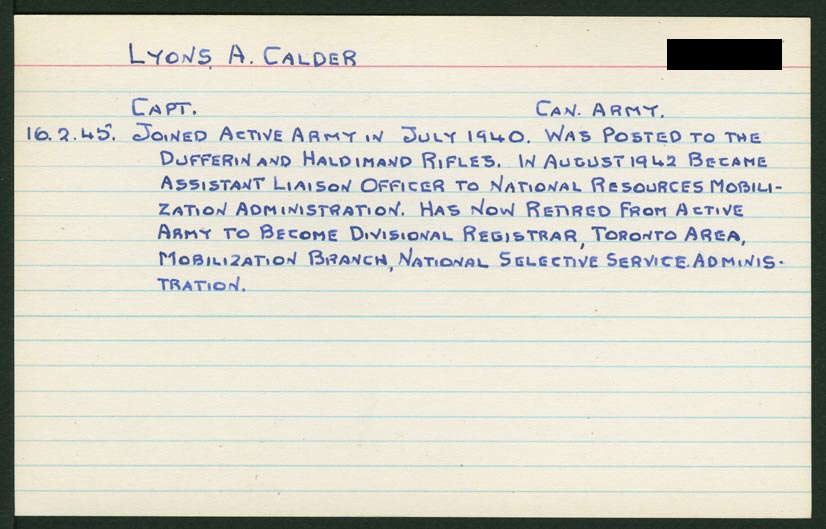 LYONS, A. CALDER
CAPT. CAN. ARMY.
16.2.45. JOINED ACTIVE ARMY IN JULY 1940. WAS POSTED TO THE
DUFFERIN AND HALDIMAND RIFLES. IN AUGUST 1942 BECAME
ASSISTANT LIAISON OFFICER TO NATIONAL RESOURCES MOBILI-
ZATION ADMINISTRATION. HAS NOW RETIRED FROM ACTIVE
ARMY TO BECOME DIVISIONAL REGISTRAR, TORONTO AREA,
MOBILIZATION BRANCH, NATIONAL SELECTIVE SERVICE ADMINIS-
TRATION.